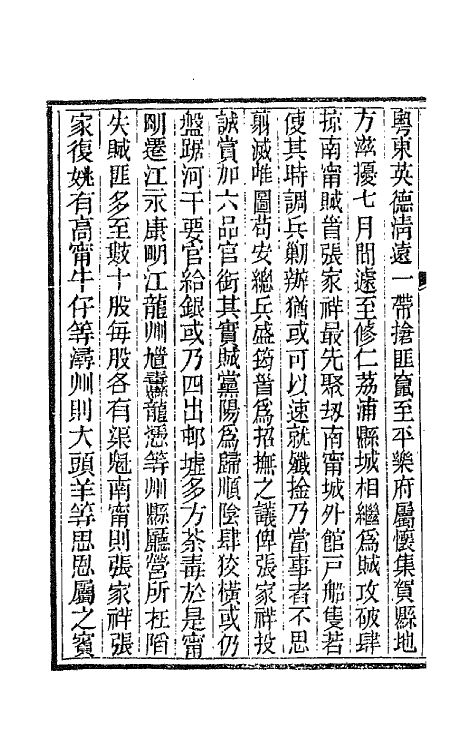 粵東英德清遠一帶搶匪竄至平樂府屬懷集賀縣地
方滋擾七月間遽至修仁荔浦縣城相繼為賊攻破肆
掠南甯賊首張家祥最先聚刼南甯城外館戸船隻若
使其時調兵勦辦猶或可以速就殲捦乃當事者不思
翦滅唯圖苟安總兵盛筠首為招撫之議俾張家祥投
誠賞加六品官銜其實賊黨陽為歸順陰肆狡橫或仍
盤踞河干要官給銀或乃四出邨墟多方荼毒於是甯
明遷江永康明江龍州馗纛龍憑等州縣廳營所在陷
失賊匪多至數十股每股各有渠魁南甯則張家祥張
家復姚有高甯牛仔等潯州則大頭羊等思恩屬之賓